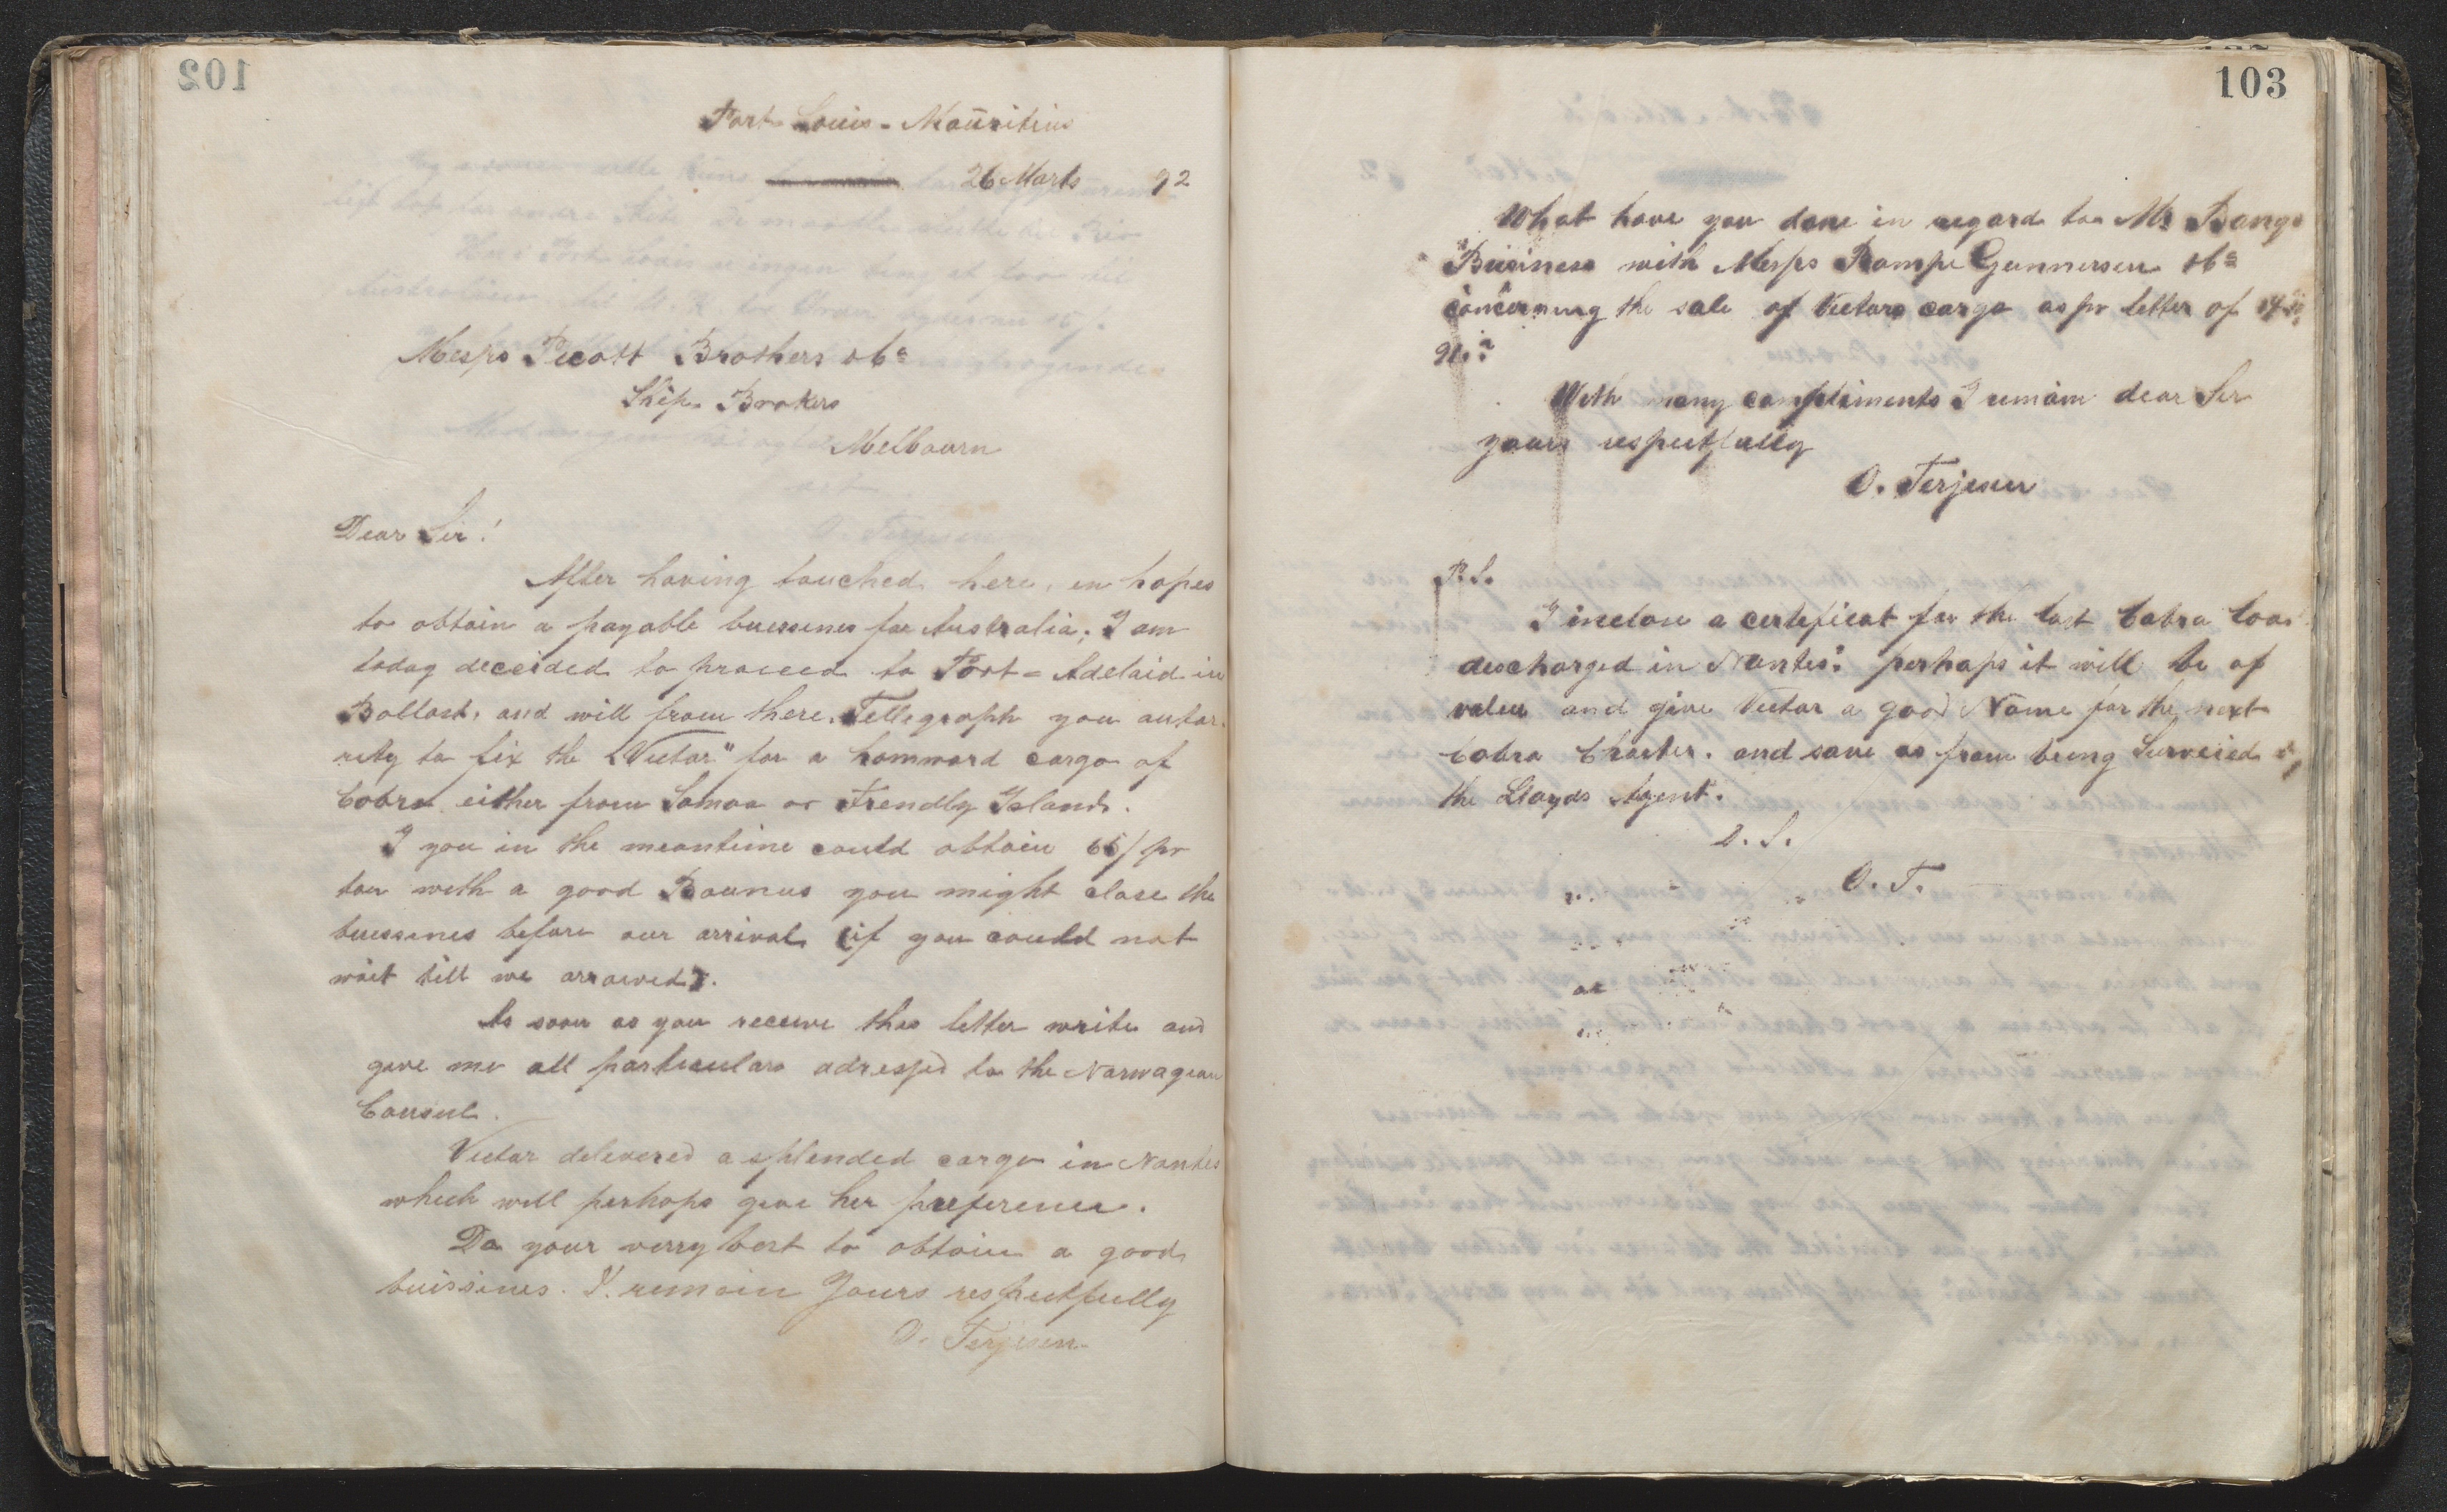 102
Port Louis - Mauritius
26 Marts 92
Messrs Pecott Brothers & Co
Ship Brokers
Melbourn
Dear Sir!
After having touched here, in hopes
to obtain a payable buessines for Australia, I am
today deceided to proceed to Port-Adelaid in
Ballast, and will from there, Tellegraph you autor-
rity to fix the "Victor" for a homward cargo of
Cobra either from Samoa or Frendly Islands.
I you in the meantime could obtain 65/ pr
ton with a good Bounus you might close the
buessines before our arrival (if you could not
wait till we arraived).
As soon as you receive this letter write and
give me all particulars adressed to the Norwagian
Consul.
Victor delevered a splended cargo in Nantes
which will perhaps give her preference.
Do your verry best to obtain a good
buissines. I remain Yours respectfully
O. Terjesen
103
What have you done in regard to Mr Bangs
Buisiness with Messrs Romps Gunnersen & Co
concerning the sale of Victors cargo as pr letter of
With many compliments I remain dear Sir
yours respectfully
O. Terjesen
P.S.
I inclose a certeficat for the last Cobra load
descharged in Nantes: perhaps it will be of
valeu and give Victor a good Name for the next
Cobra Charter. and save os from being Surveied by
the Lloyds Agent.
D. S.
O. T.